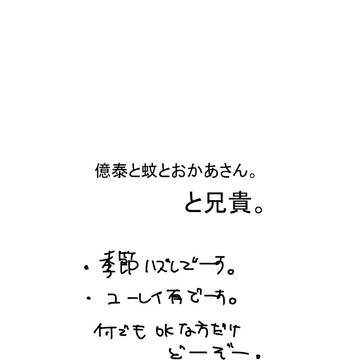 億泰と蚊とおかあさん。
と兄貴。
・季節ハズレでーす。
・ユーレイ有でーす。
何でもOKな方だけ
どーぞー。